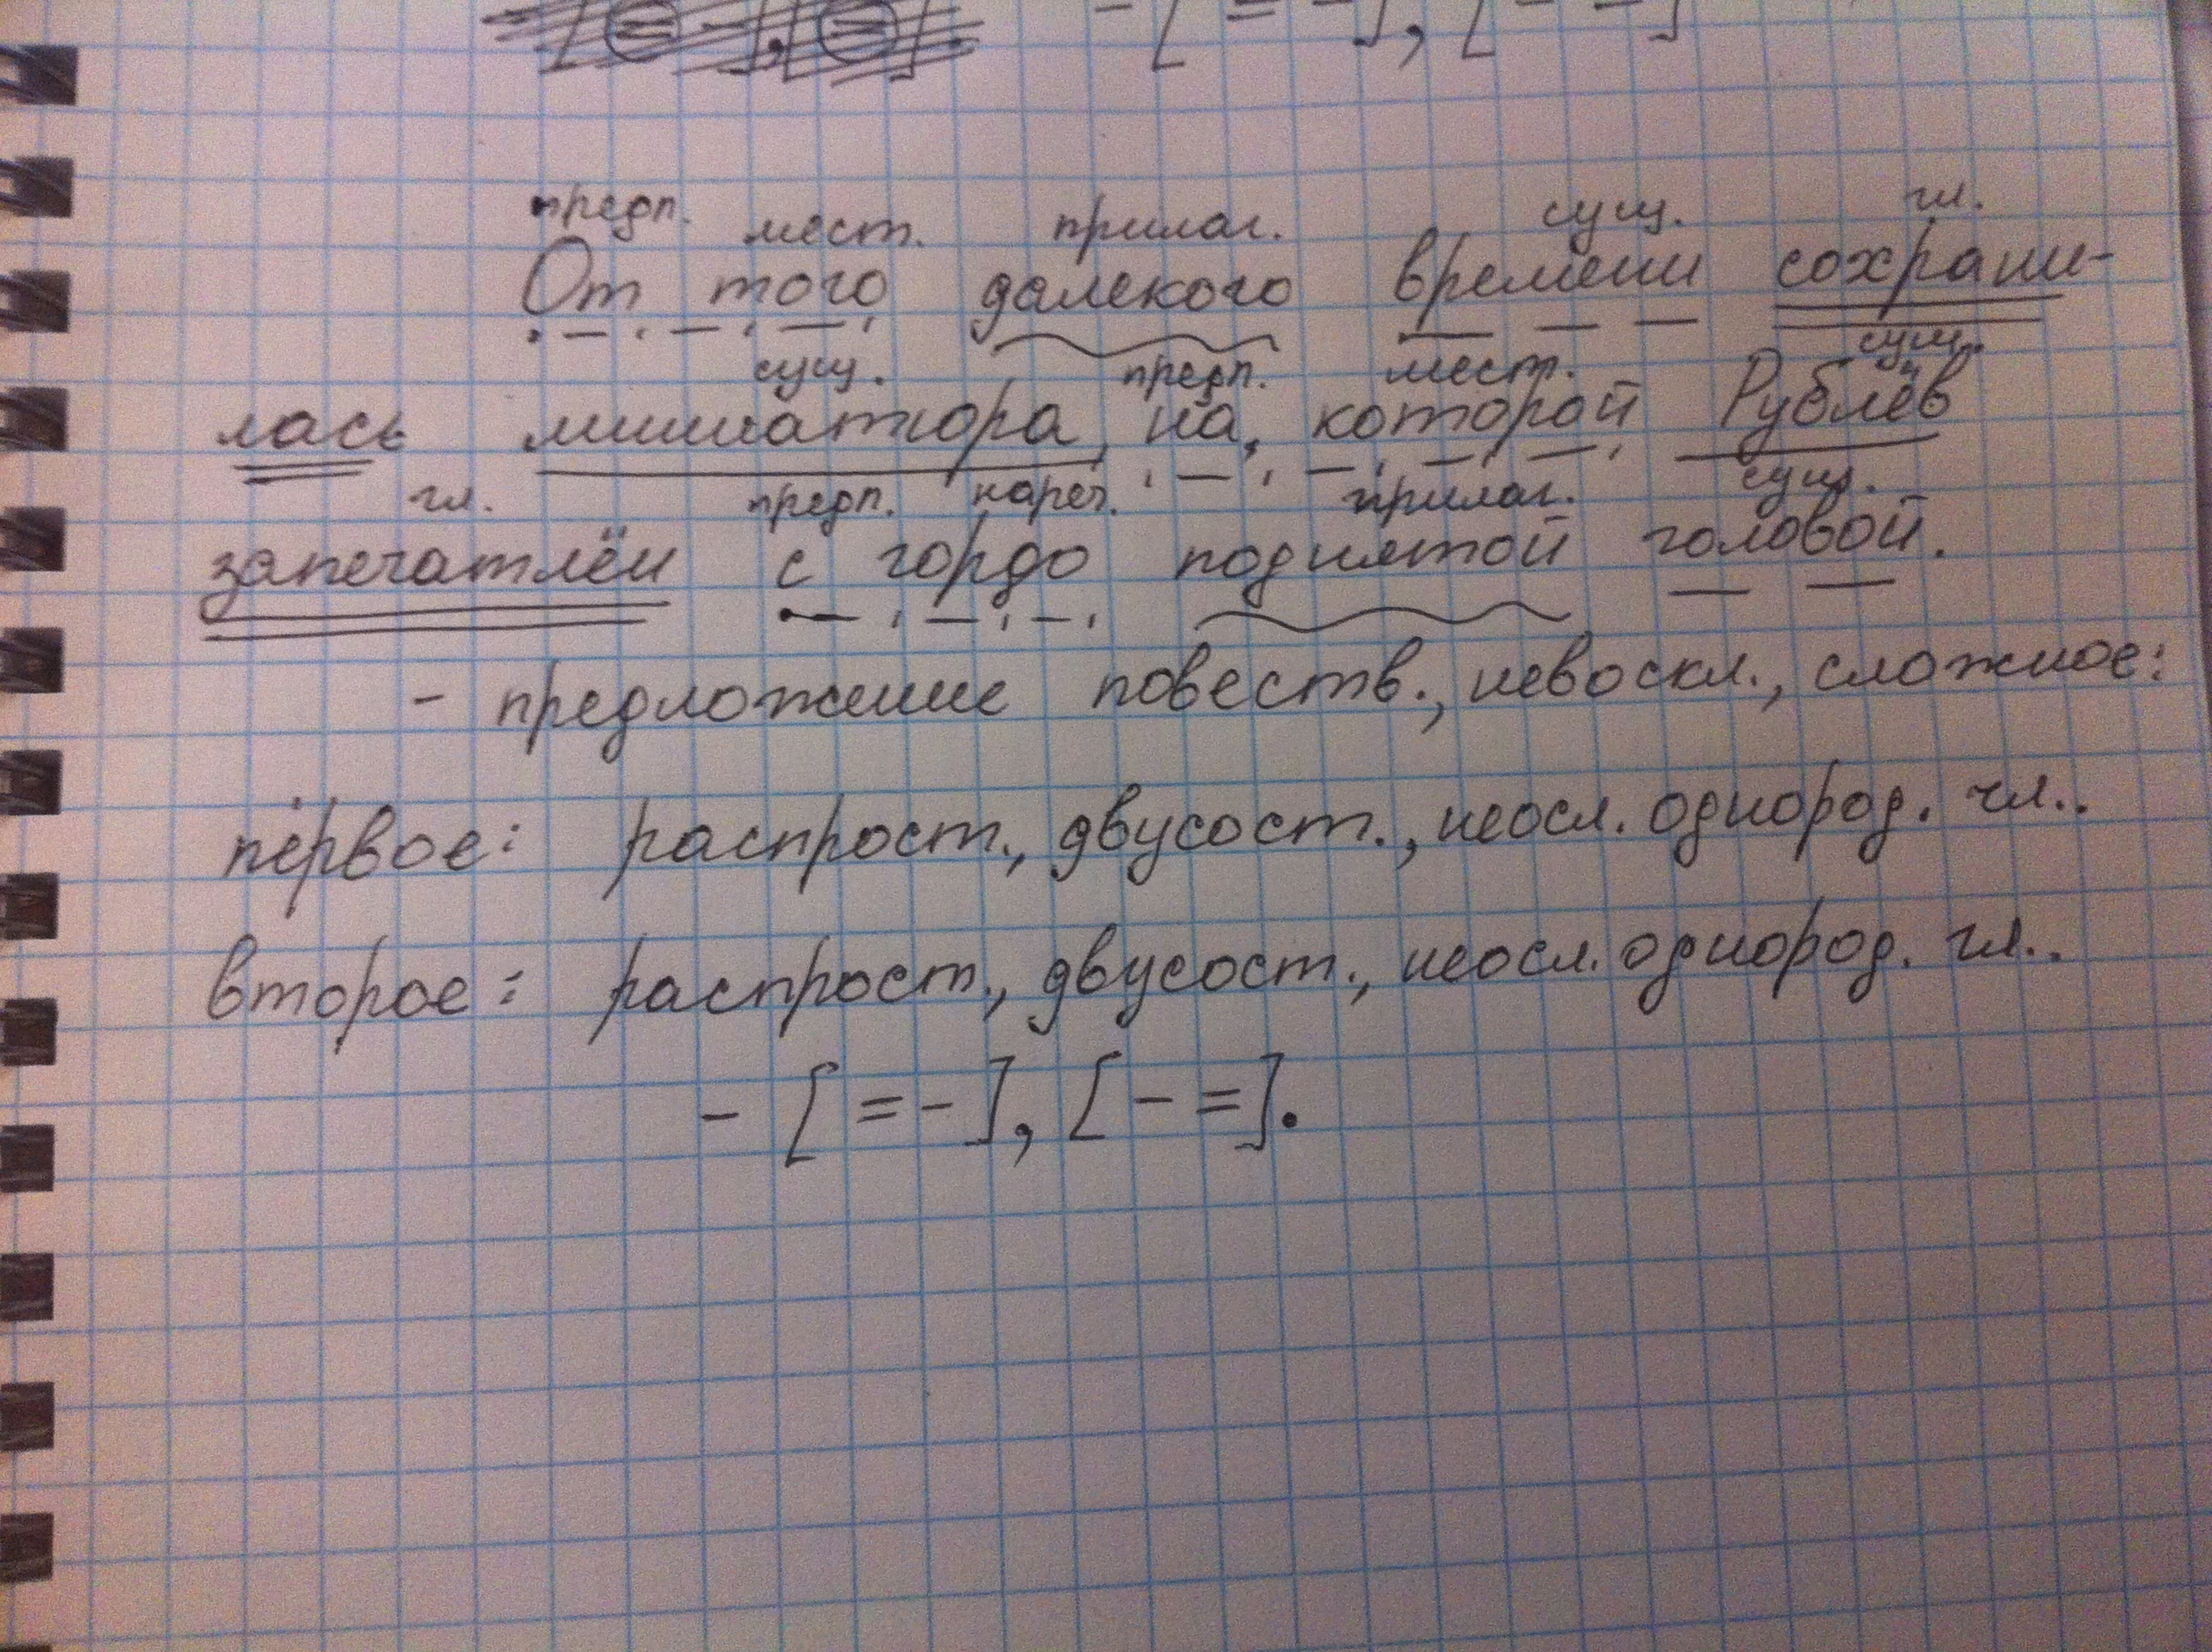 - [ = - ], [ - = ]
предп. мест. прилаг. сущ. гл.
От того далекого времени сохрани-
сущ. предп. мест. сущ.
лась миниатюра, на, которой Рублёв
гл. предп. нареч. прилаг. сущ.
запечатлён с гордо поднятой головой.
- предложение повеств., невоскл., сложное:
первое: распрост., двусост., неосл. однород. чл..
второе: распрост., двусост., неосл. однород. чл..
- [ = - ], [ - = ].